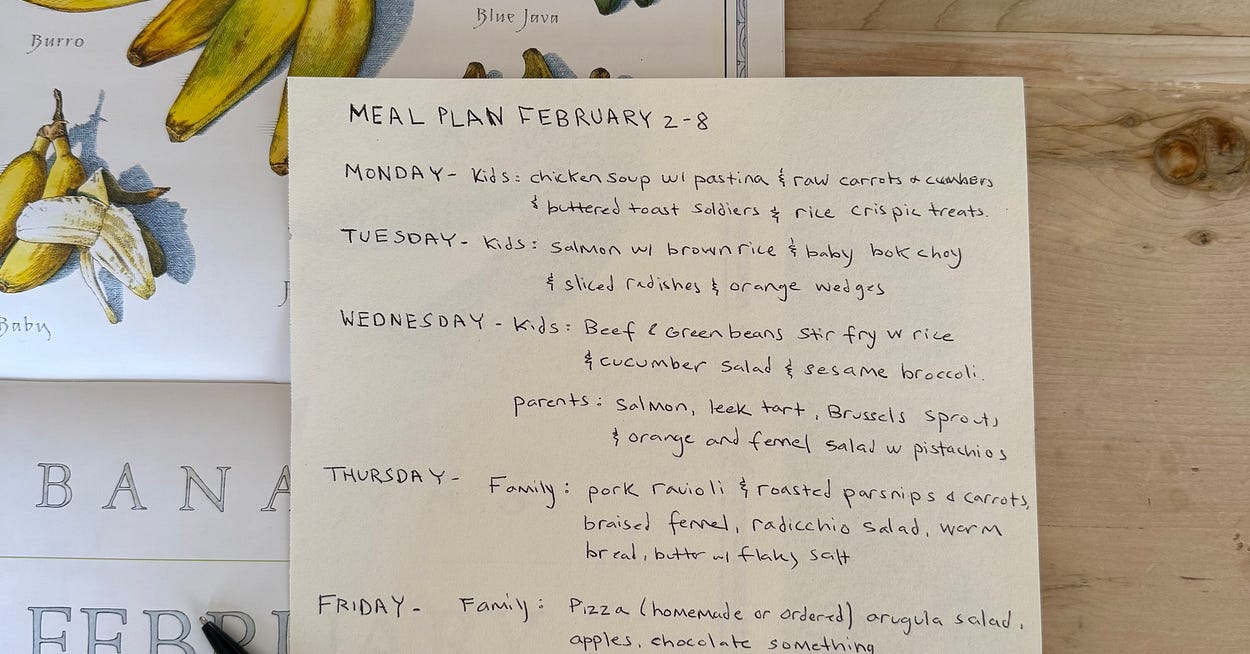 Burro
Blue Java
Baby
BANA
FEBR
MEAL PLAN FEBRUARY 2-8
MONDAY - Kids: chicken soup w/ pastina & raw carrots & cumbers
& buttered toast soldiers & rice crispie treats.
TUESDAY - Kids: salmon w/ brown rice & baby bok choy
& sliced radishes & orange wedges
WEDNESDAY - Kids: Beef & Green beans stir fry w rice
& cucumber salad & sesame broccoli.
parents: salmon, leek tart, Brussels sprouts
& orange and fennel salad w pistachios
THURSDAY - Family: pork ravioli & roasted parsnips & carrots,
braised fennel, radicchio salad, warm
bread, butter w/ flaky salt
FRIDAY - Family: Pizza (homemade or ordered) arugula salad,
apples, chocolate something